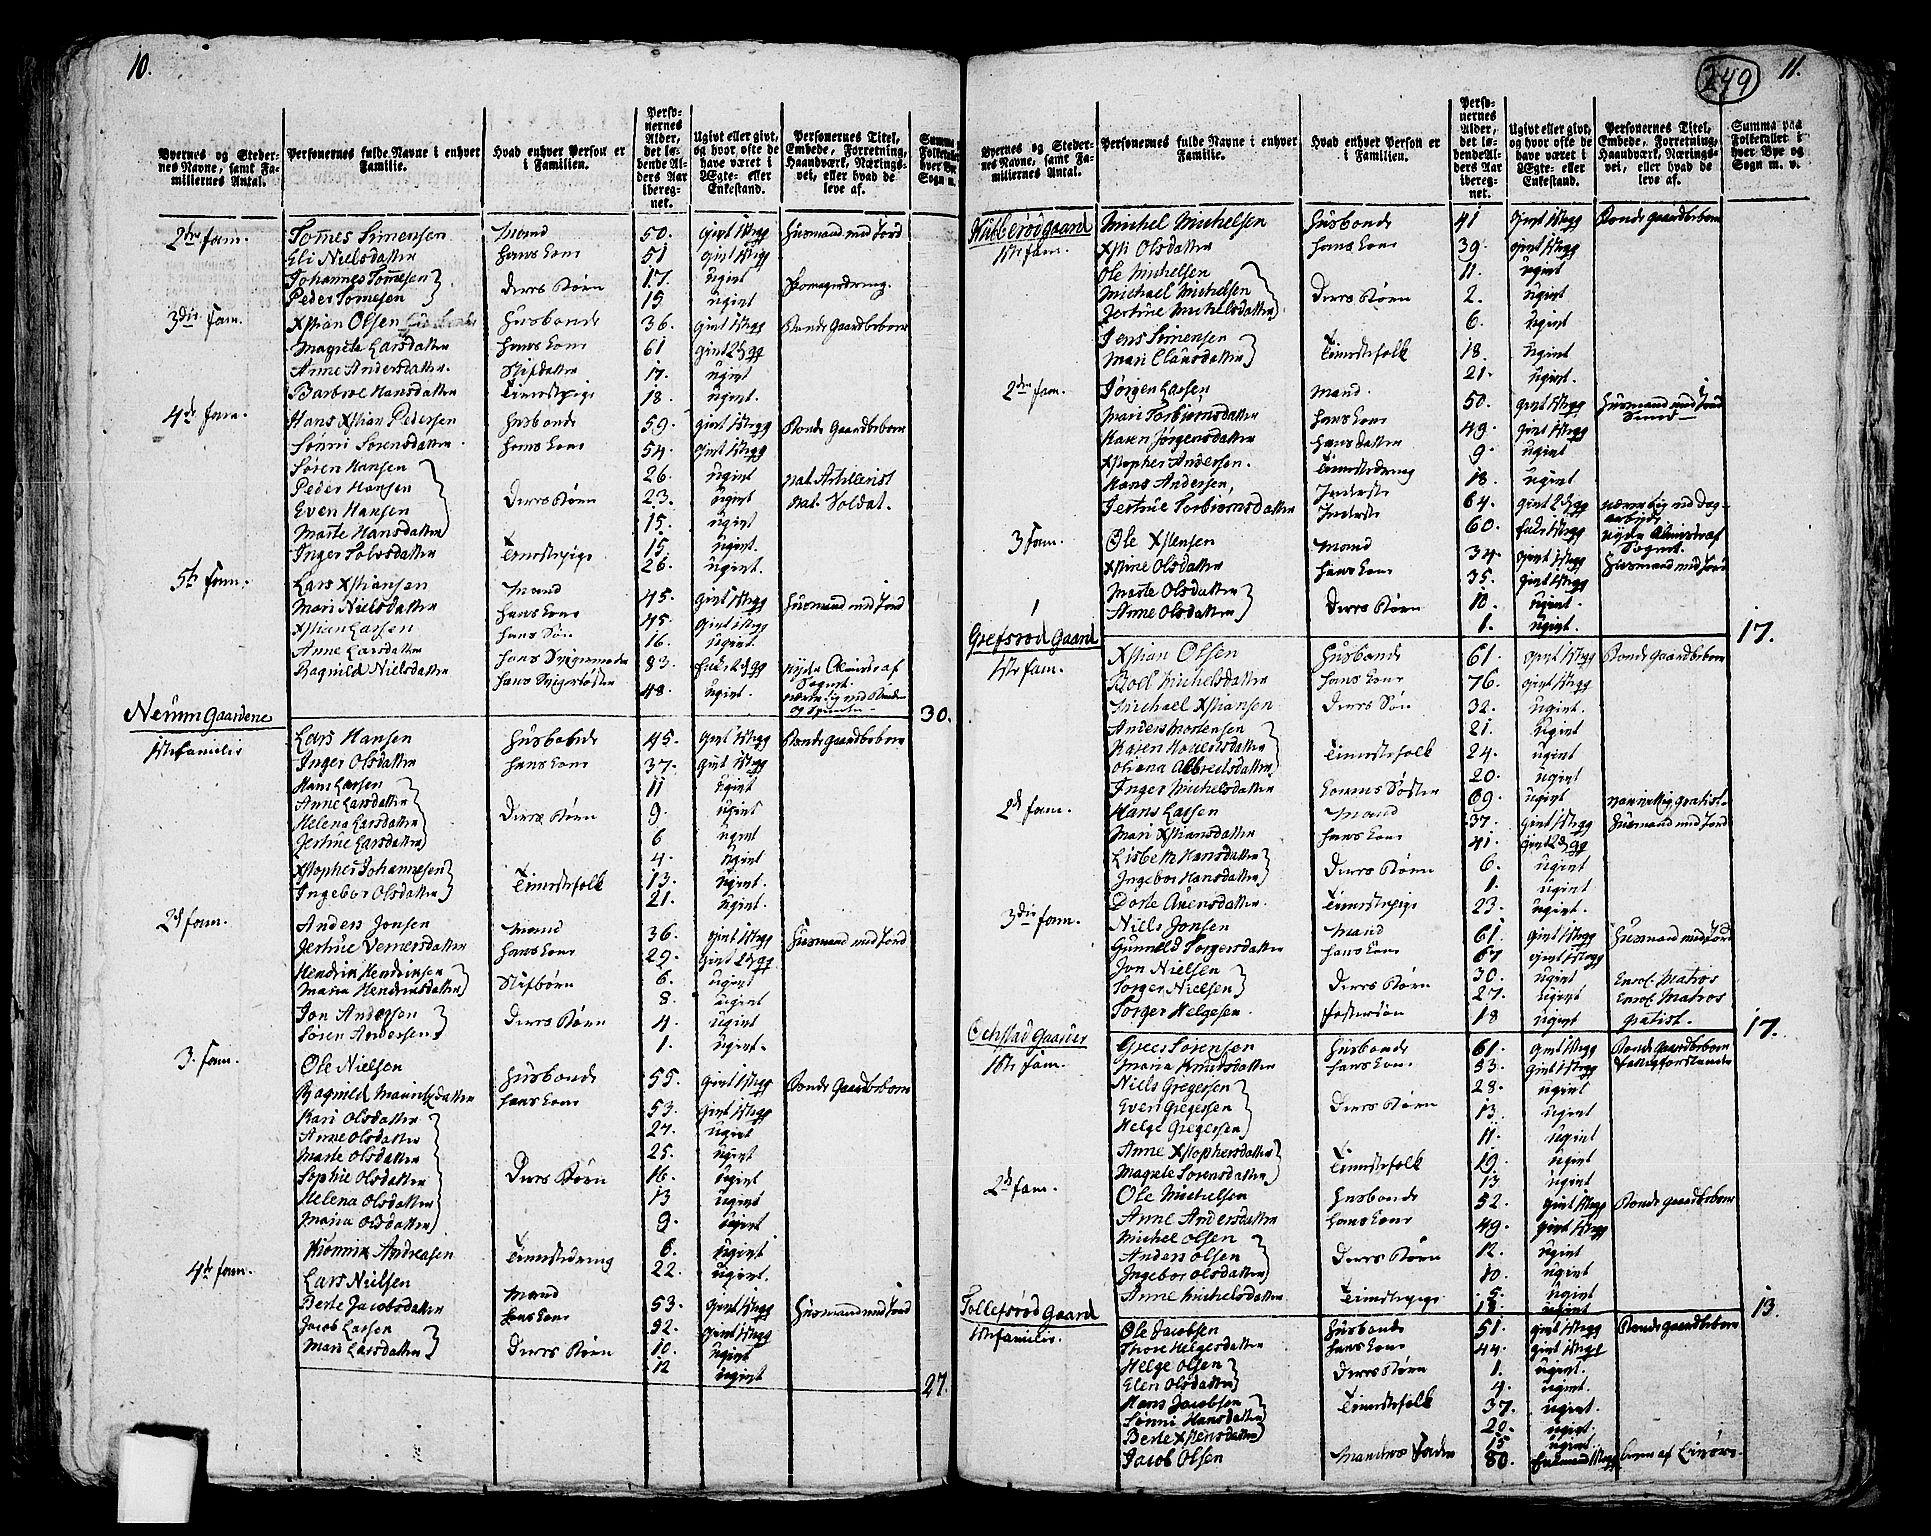 10.
Byernes og Steder-
nes Navne, samt Fa-
miliernes Antal.
Personernes fulde Navne i enhver
Familie.
Hvad enhver Person er
i Familien.
Perso-
nernes
Alder,
det lø-
bende Al-
ders Aar
ibereg-
net.
Ugivt eller givt,
og hvor ofte de
have været i
Ægte- eller
Enkestand.
Personernes Titel,
Embede, Forretning,
Haandværk, Nærings-
vei, eller hvad de
leve af.
2den fam. Tomes Simensen Mand 50. givt 1ste gg Huusmand med Jord
Eli Nielsdatter hans Kone 51 givt 1ste gg
Johannes Tomesen 17. ugivt
Peder Tomesen Deres Børn 15 ugivt
3die fam. Xstian Olsen Husbonde 36. givt 1ste gg Bonde Gaardbeboer
Magrete Larsdatter hans Kone 61 givt 2d gg
Anne Andersdatter Stifdatter 17. ugivt
Barbroe Hansdatter Tienestepige 18. ugivt.
4de fam. Hans Xstian Pedersen Husbonde 59. givt 1ste gg Bonde Gaardbeboer
Sønni Sørensdatter hans Kone 54. givt 1ste gg
Søren Hansen 26. ugivt nat. Artilerist
Peder Hansen Deres Børn 23. ugivt nat. Soldat.
Even Hansen 15. ugivt
Marte Hansdatter 15. ugivt.
Inger Tolvsdatter Tienestepige 26. ugivt.
5te fam. Lars Xstiansen Mand 45. givt 1ste gg Huusmand med Jord
Mari Nielsdatter hans Kone 45. givt 1ste gg
Xstian Larsen hans Søn 16. ugivt.
Anne Larsdatter hans Svigermoder 83. nyder Almisse af
Sognet.
Ragnild Nielsdatter hans Svigersøster 48. ugivt.
30.
Neuum Gaardene
1ste familie Lars Hansen Husbonde 45. givt 1ste gg Bonde Gaardbeboer
Inger Olsdatter hans Kone 37. givt 1ste gg
Hans Larsen 11 ugivt
Anne Larsdatter Deres Børn 9. ugivt
Helena Larsdatter 6 ugivt
Jertrue Larsdatter 4. ugivt
Xstopher Johannesen Tienestefolk 13. ugivt.
Ingebor Olsdatter 21. ugivt.
2d fam. Anders Jonsen Mand 36. givt 1ste gg Huusmand med Jord
Jertrue Vernersdatter hans Kone 29. givt 2d gg.
Hendrik Hendriksen Stifbørn 6. ugivt
Maria Hendriksdatter 8. ugivt
Jon Andersen Deres Børn 4. ugivt
Søren Andersen 1. ugivt.
3. fam. Ole Nielsen Husbonde 55. givt 1ste gg Bonde Gaardbeboer
Ragnild Mauritzdatter hans Kone 53. givt 1ste gg
Kari Olsdatter 27. ugivt
Anne Olsdatter 25. ugivt
Marte Olsdatter Deres Børn 16. ugivt
Sophie Olsdatter 13 ugivt
Helena Olsdatter 9. ugivt
Maria Olsdatter 6. ugivt
Andreasen Tienestedreng 22. ugivt.
4de fam. Lars Nielsen Mand 53. givt 1ste gg Huusmand med Jord
Berte Jacobsdatter hans Kone 32. givt 1ste gg
Jacob Larsen Deres Børn 10. ugivt
Mari Larsdatter 12 ugivt
27.
249
11.
Byernes og Steder-
nes Navne, samt Fa-
miliernes Antal.
Personernes fulde Navne i enhver
Familie.
Hvad enhver Person er
i Familien.
Perso-
nernes
Alder,
det lø-
bende Al-
ders Aar
ibereg-
net.
Ugivt eller givt,
og hvor ofte de
have været i
Ægte- eller
Enkestand.
Personernes Titel,
Embede, Forretning,
Haandværk, Nærings-
vei, eller hvad de
leve af.
Summa paa
Folketallet i
hver Bye og
Sogn m. v.
1ste fam. Michel Michelsen Husbonde 41 givt 1ste gg Bonde Gaardbeboer
Xsti Olsdatter hans Kone 39. givt 1ste gg
Ole Michelsen 11. ugivt
Michael Michelsen Deres Børn 2. ugivt
Jertrue Michelsdatter 6. ugivt
Jens Simensen Tienestefolk 18. ugivt
Mari Clausdatter 21. ugivt.
2den fam. Jørgen Larsen Mand. 50. givt 1ste gg Huusmand med Jord
Mari Torbiørnsdatter hans Kone 49. givt 1ste gg
Karen Jørgensdatter hans datter 9. ugivt
Xstopher Andersen. Tienestedreng 18. ugivt
Hans Andersen, Inderste 64. givt 2d gg
Jertrue Torbiørnsdatter Inderste 60.
3 fam. Ole Xstensen Mand 34. givt 1ste gg Huusmand med Jord
Xstine Olsdatter hans Kone 35. givt 1ste gg
Marte Olsdatter Deres Børn 10. ugivt.
Anne Olsdatter 1. ugivt.
17.
Grefsrød Gaard
1ste fam. Xstian Olsen Husbonde 61. givt 1ste gg Bonde Gaardbeboer
Bodl Michelsdatter hans Kone 76. givt 1ste gg
Michael Xstiansen Deres Søn 32. ugivt
Anders Mortensen 21. ugivt
Karen Halversdatter Tienestefolk 24. ugivt
Oliana Albretsdatter 20. ugivt
Inger Michelsdatter Konens Søster 69. ugivt
2d fam. Hans Larsen Mand 37. givt 1ste gg Huusmand med Jord
Mari Xstiansdatter hans Kone 41. givt 2d gg
Lisbeth Hansdatter Deres Børn 6. ugivt
Ingebor Hansdatter 1. ugivt
Dorte Auensdatter. Tienestepige 23. ugivt.
3die fam. Niels Jonsen Mand 61. givt 1ste gg Huusmand med Jord
Gunneld Torgersdatter hans Kone 67 givt 1ste gg
Jon Nielsen Deres Børn 30. ugivt Enrol. Matros
Torger Nielsen 27. ugivt Enrol. Matros
Torger Helgesen. fostersøn 18 ugivt gratist.
17.
1ste fam. Grees Sørensen Husbonde 61. givt 1ste gg Bonde Gaardbeboer
Maria Knutsdatter hans Kone 53. givt 1ste gg
Niels Gregersen 28. ugivt
Even Gregersen Deres Børn 13. ugivt
Helge Gregersen 11. ugivt
Anne Xstophersdatter Tienestefolk 19. ugivt
Magrete Sørensdatter 13 ugivt
2d fam. Ole Michelsen Husbonde 52. givt 1ste gg Bonde Gaardbeboer
Anne Andersdatter hans Kone 49. givt 1ste gg
Michel Olsen 12. ugivt
Anders Olsen Deres Børn 10. ugivt
Ingebor Olsdatter 5. ugivt
Anne Michelsdatter Tienestepige 18. ugivt
13.
Tollefsrød Gaard
1ste familie. Ole Jacobsen Husbonde 51. givt 1ste gg Bonde Gaardbeboer
Thore Helgesdatter hans Kone 44. givt 1ste gg
Helge Olsen Deres Børn 1. ugivt.
Elen Olsdatter 4. ugivt.
Hans Jacobsen Tienestefolk 37. ugivt.
Sønni Hansdatter 20. ugivt.
Berte Xstensdatter 15 ugivt.
Jacob Olsen Mandens Fader 80.